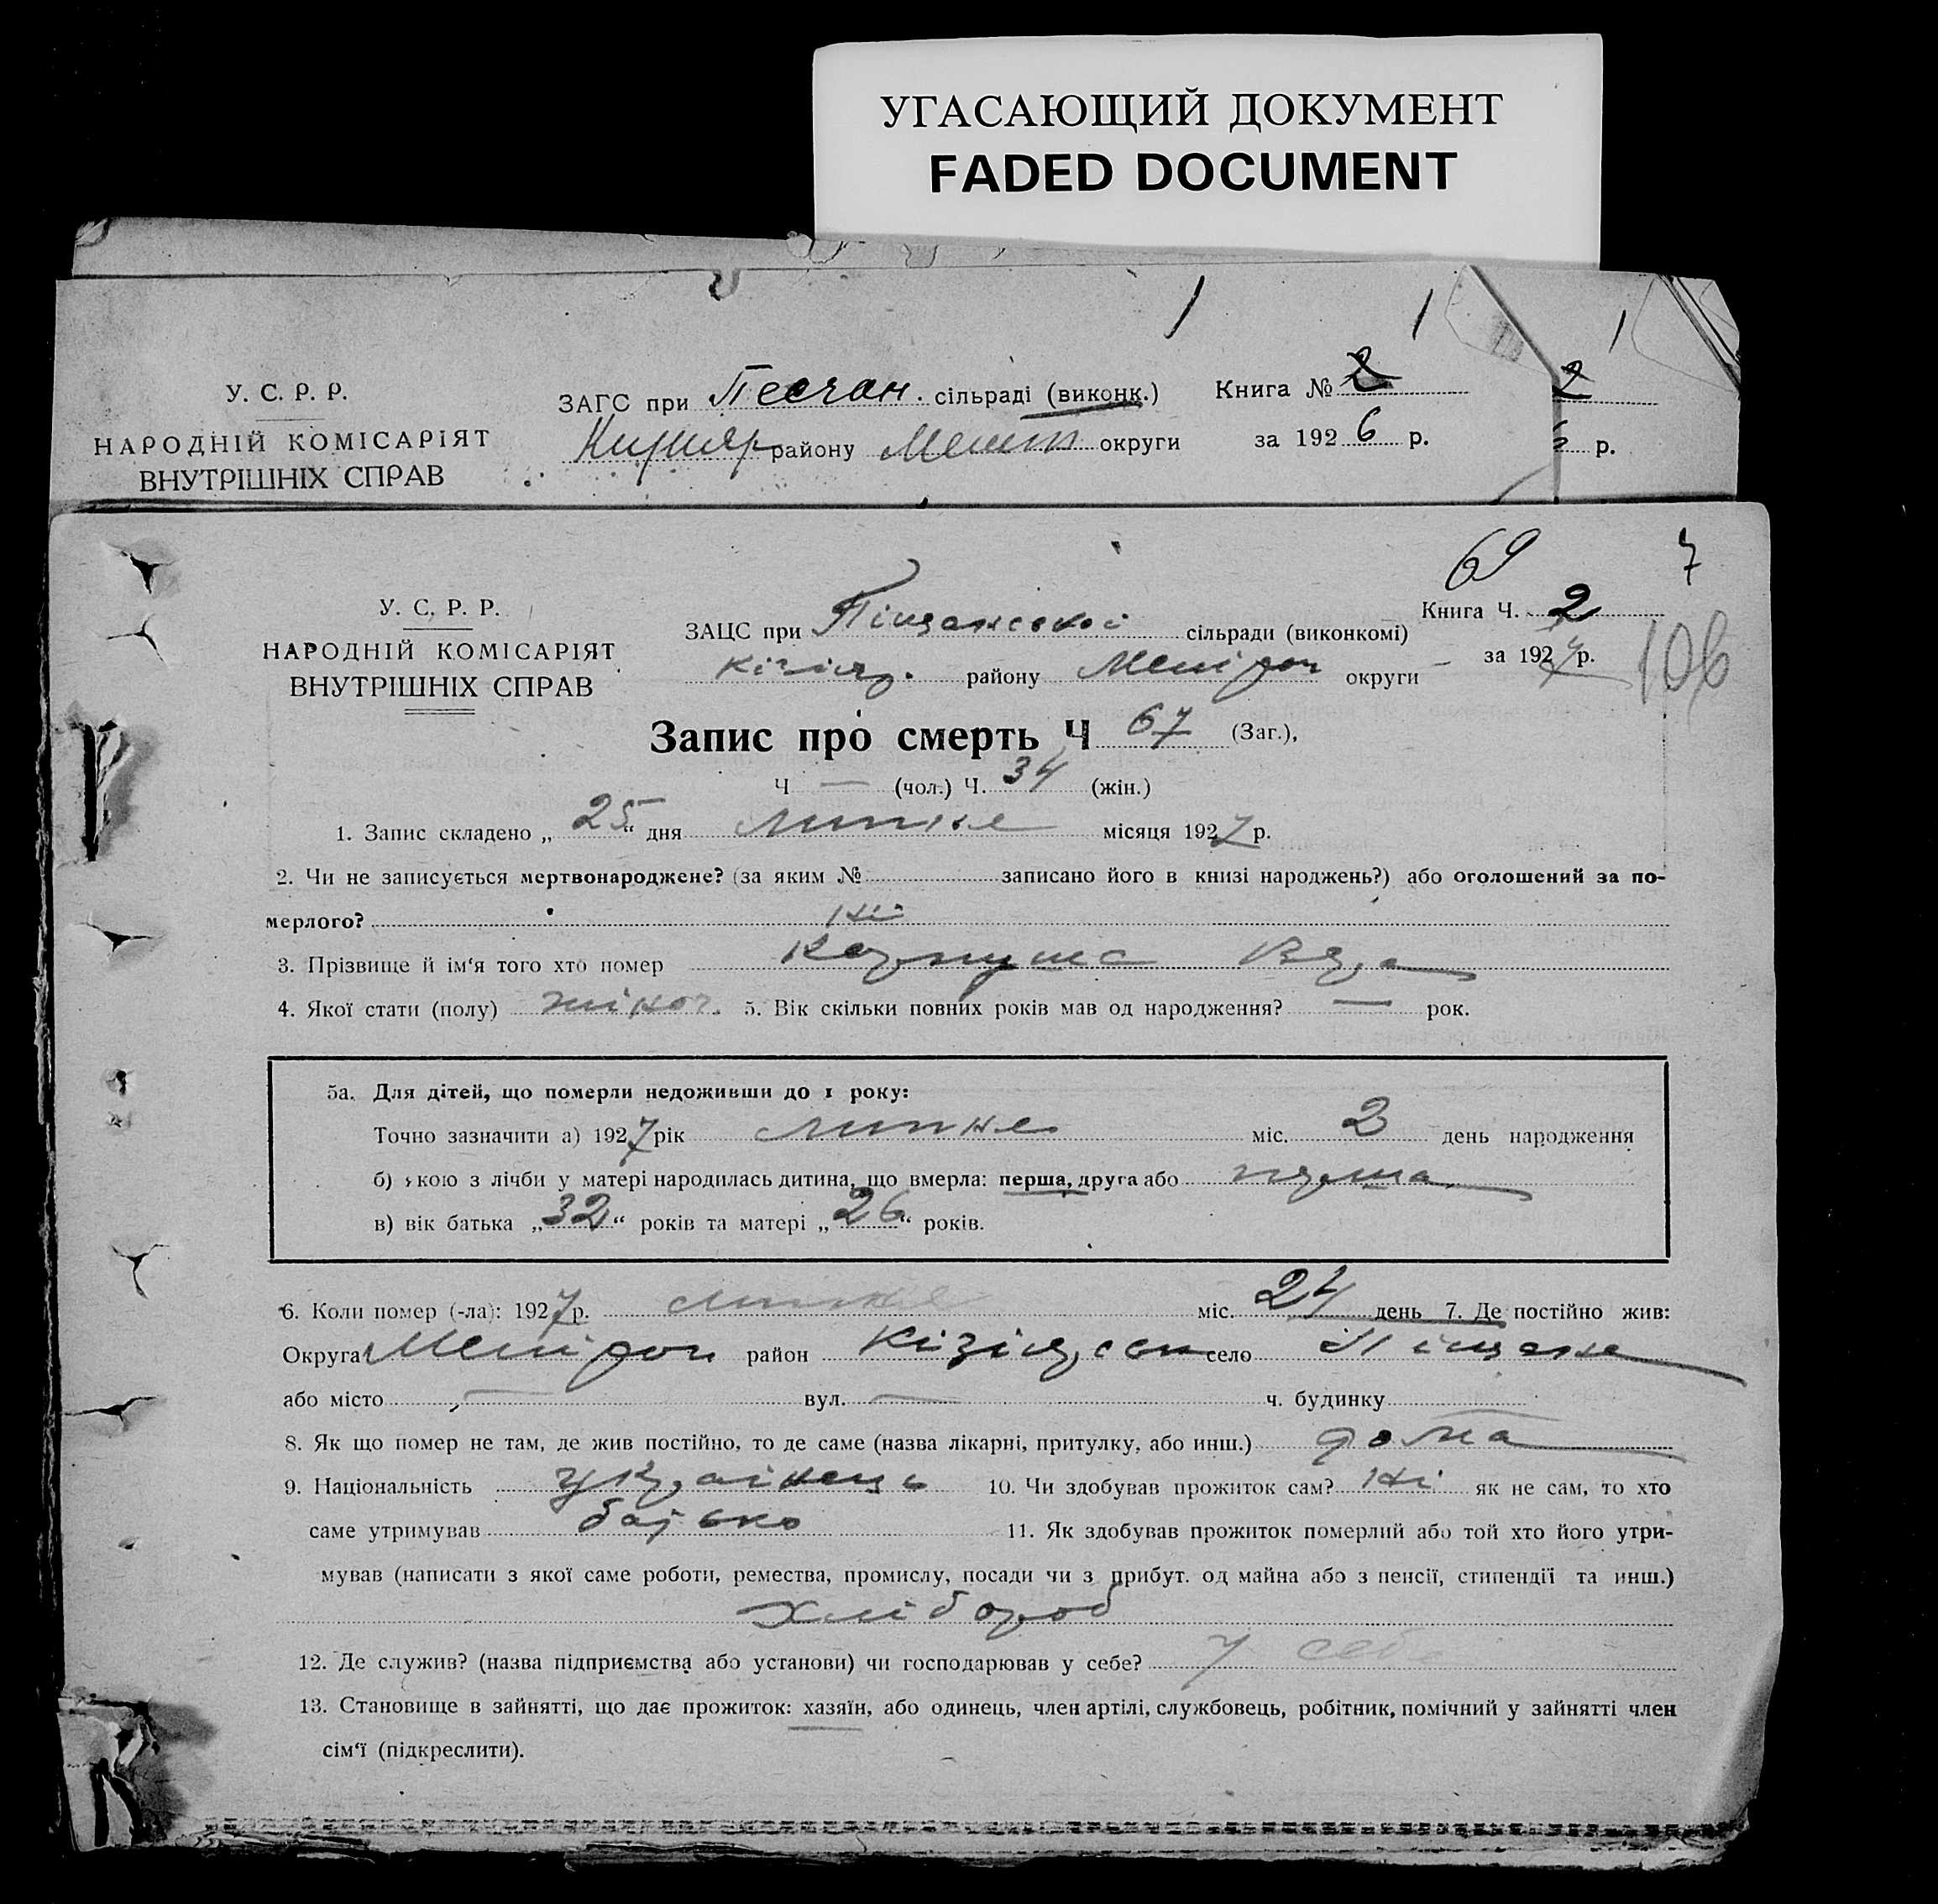 УГАСАЮЩИЙ ДОКУМЕНТ
FADED DOCUMENT
У. С. Р. Р.
НАРОДНІЙ КОМІСАРІЯТ
ВНУТРІШНІХ СПРАВ
ЗАГС при Песчан. сільраді (виконк.)
району Меліт округи
Книга № 2
за 1926 р.
2
6 р.
69
7
У. С. Р. Р.
НАРОДНІЙ КОМІСАРІЯТ
ВНУТРІШНІХ СПРАВ
ЗАЦС при Піщанській сільради (виконкомі)
Кізіяр. району Мелітоп округи
Книга Ч. 2
за 1927 р.
106
Запис про смерть Ч 67 (Заг.),
Ч — (чол.) Ч. 34 (жін.)
1. Запис складено „25“ дня липня місяця 1927 р.
2. Чи не записується мертвонароджене? (за яким № записано його в книзі народжень?) або оголошений за по-
мерлого? ні
3. Прізвище й ім‘я того хто помер Вера
4. Якої стати (полу) жіноч. 5. Вік скільки повних років мав од народження? — рок.
5а. Для дітей, що померли недоживши до 1 року:
Точно зазначити а) 1927 рік липня міс. 2 день народження
б) якою з лічби у матері народилась дитина, що вмерла: перша, друга або перша
в) вік батька „32“ років та матері „26“ років.
6. Коли помер (-ла): 1927 р. липня міс. 24 день 7. Де постійно жив:
Округа Мелітоп район Кізіярськ село Піщане
або місто — вул. — ч. будинку —
8. Як що помер не там, де жив постійно, то де саме (назва лікарні, притулку, або инш.) дома
9. Національність українець 10. Чи здобував прожиток сам? Ні як не сам, то хто
саме утримував батько 11. Як здобував прожиток померлий або той хто його утри-
мував (написати з якої саме роботи, ремества, промислу, посади чи з прибут. од майна або з пенсії, стипендії та инш.)
хлібороб
12. Де служив? (назва підприємства або установи) чи господарював у себе? у себе
13. Становище в зайнятті, що дає прожиток: хазяїн, або одинець, член артілі, службовець, робітник, помічний у зайнятті член
сім‘ї (підкреслити).